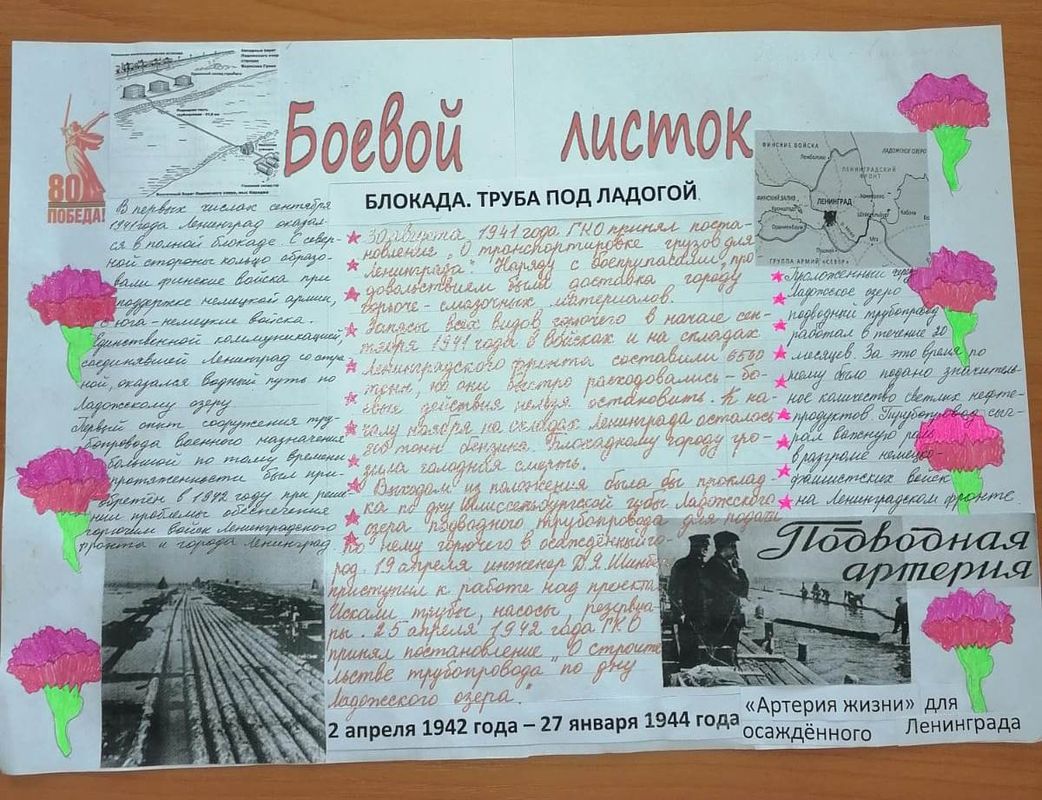 Боевой листок
80
ПОБЕДА!
БЛОКАДА. ТРУБА ПОД ЛАДОГОЙ
В первых числах сентября
1941 года Ленинград оказал-
ся в полной блокаде. С север-
ной стороны кольцо образо-
вали финские войска при
поддержке немецкой армии,
с юга - немецкие войска.
Единственной коммуникацией,
соединявшей Ленинград со стра-
ной, оказался водный путь по
Ладожскому озеру
Первый опыт сооружения тру-
бопровода военного назначения
большой по тому времени
протяженности был при-
обретён в 1942 году при реше-
нии проблемы обеспечения
горючим войск Ленинградского
фронта и города Ленинград
30 августа 1941 года ГКО принял поста-
новление „О транспортировке грузов для
Ленинграда". Наряду с боеприпасами, про-
довольствием были доставка городу
горюче-смазочных материалов.
Запасы всех видов горючего в начале сен-
тября 1941 года в войсках и на складах
Ленинградского фронта составили
тонн, но они быстро расходовались - бо-
евые действия нельзя остановить. К на-
чалу ноября на складах Ленинграда осталось
300 тонн бензина. Блокадному городу гро-
зила голодная смерть.
Выходом из положения была бы проклад-
ка по дну Шлиссельбургской губы Ладожского
озера подводного трубопровода для подачи
по нему горючего в осаждённый го-
род. 19 апреля инженер Д.Я. Шинбе
приступил к работе над проектом
Искали трубы, насосы, резервуа-
ры. 25 апреля 1942 года ГКО
принял постановление „О строите
льстве трубопровода" по дну
Ладожского озера."
2 апреля 1942 года – 27 января 1944 года
ФИНСКИЕ ВОЙСКА
ЛАДОЖСКОЕ ОЗЕРО
ЛЕНИНГРАДСКИЙ ФРОНТ
ФИНСКИЙ ЗАЛИВ
ЛЕНИНГРАД
Кронштадт
Мга
ГРУППА АРМИЙ «СЕВЕР»
Проложенный через
Ладожское озеро
подводный трубопровод
работал в течение 20
месяцев. За это время по
нему было подано значитель-
ное количество светлых нефте-
продуктов Трубопровод сыг-
рал важную роль
в разгроме немецко-
фашистских войск
на Ленинградском фронте
Подводная
артерия
«Артерия жизни» для
осаждённого Ленинграда